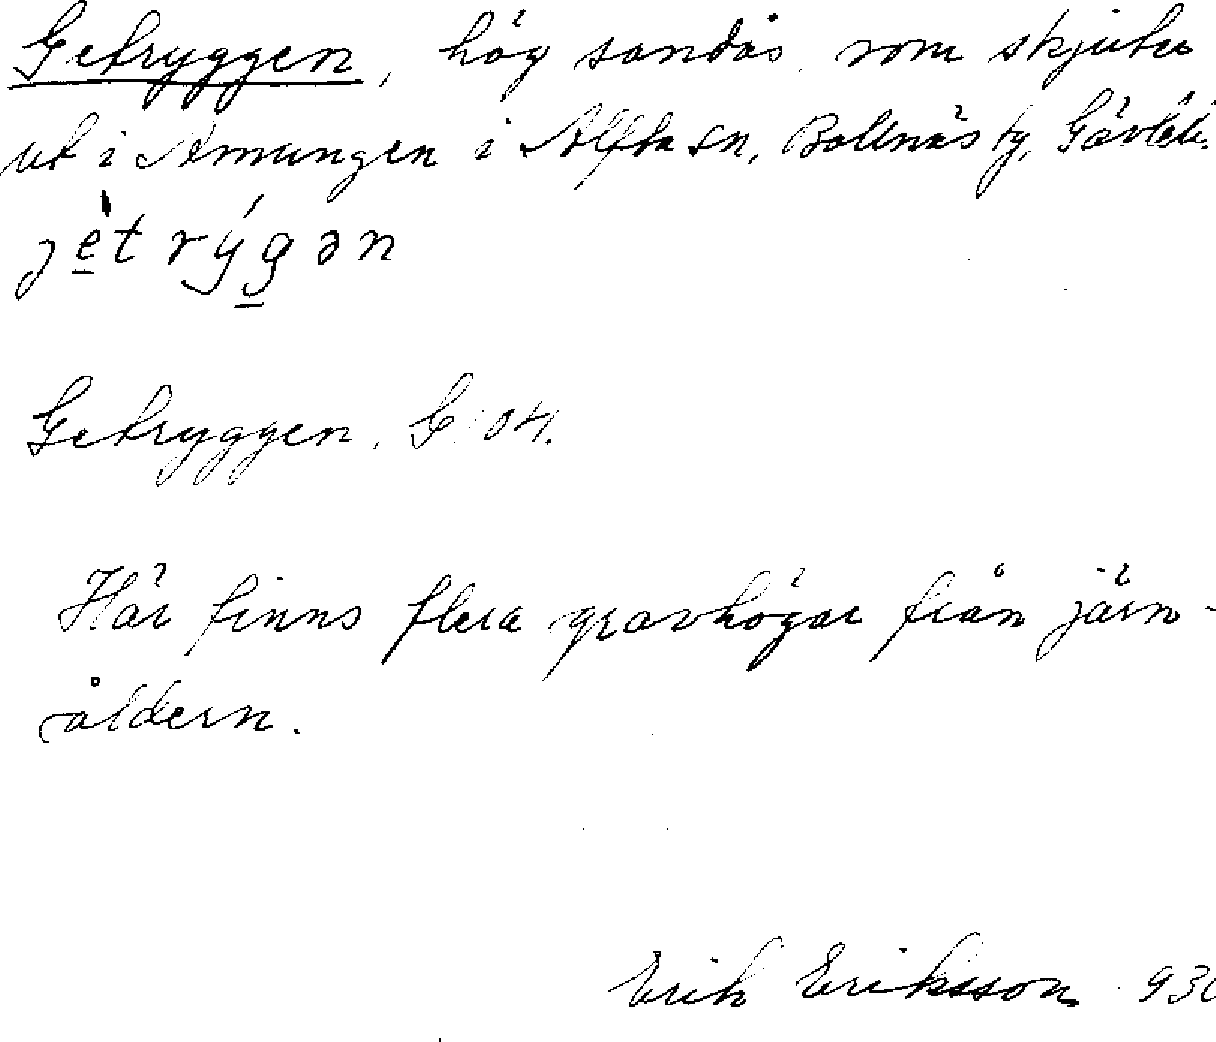 Getryggen, hög sandås som skjuter
ut i Amungen i Alfta sn, Bollnäs tg, Gävleb.
jèt rýgən
Getryggen, G 104.
Här finns flera gravhögar från järn-
åldern.
Erik Eriksson 930